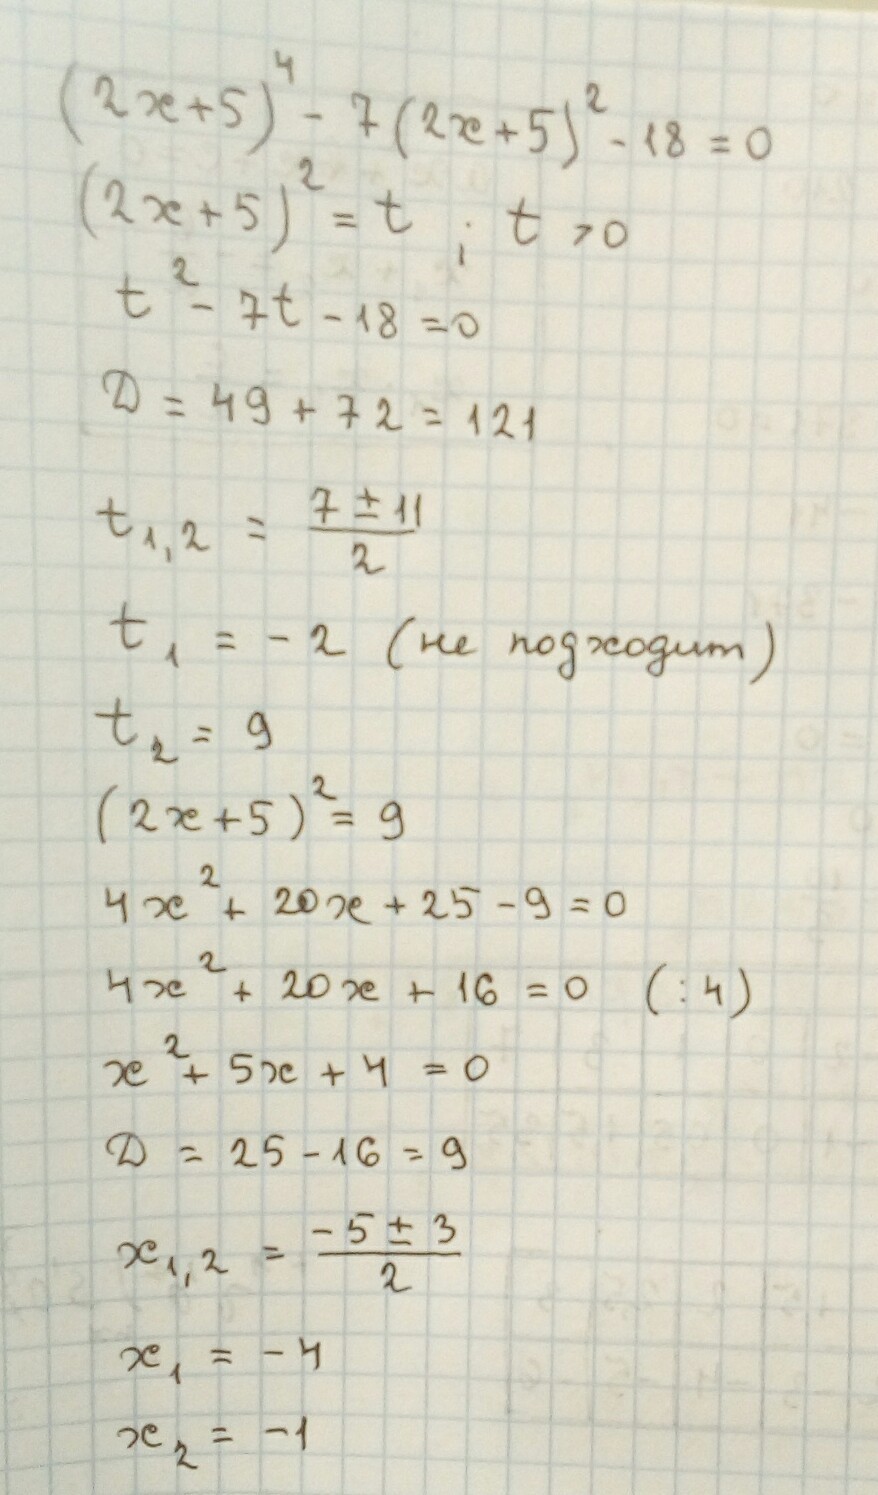 (2x+5)⁴ - 7(2x+5)² - 18 = 0
(2x+5)² = t ; t > 0
t² - 7t - 18 = 0
D = 49 + 72 = 121
t₁,₂ = (7 ± 11)/2
t₁ = -2 (не подходит)
t₂ = 9
(2x+5)² = 9
4x² + 20x + 25 - 9 = 0
4x² + 20x + 16 = 0 (:4)
x² + 5x + 4 = 0
D = 25 - 16 = 9
x₁,₂ = (-5 ± 3)/2
x₁ = -4
x₂ = -1